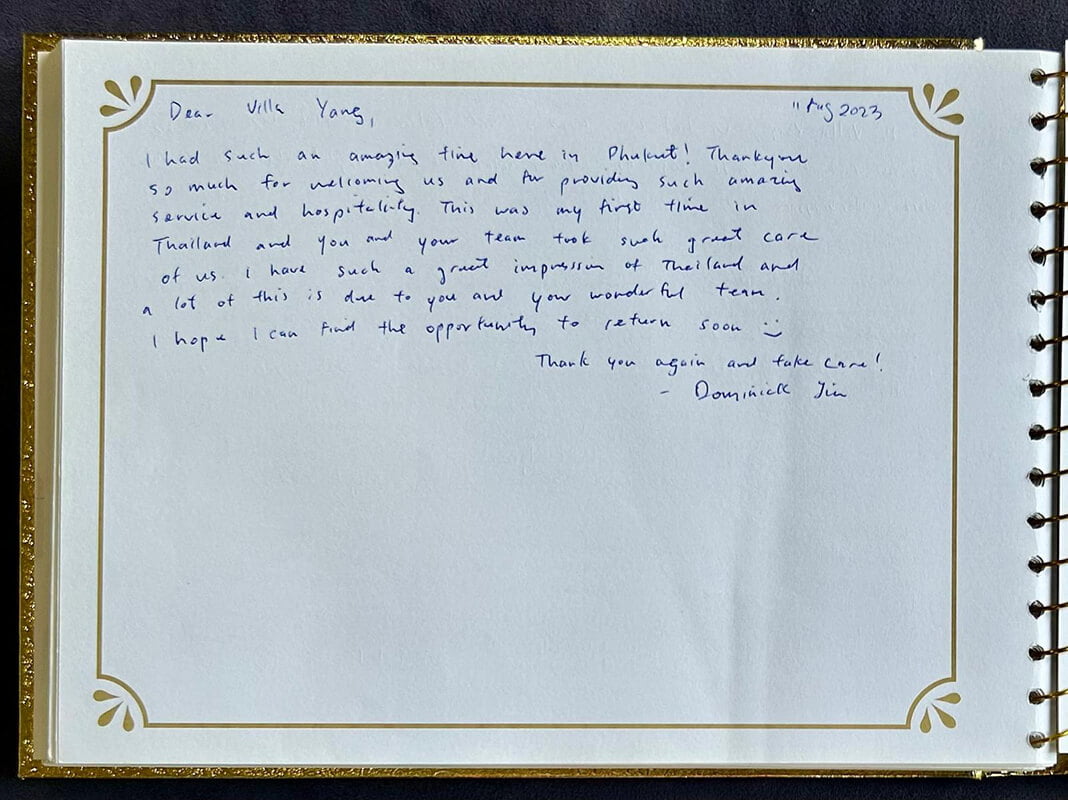 Dear Villa Yang,
11 Aug 2023
I had such an amazing time here in Phuket! Thankyou
so much for welcoming us and for providing such amazing
service and hospitality. This was my first time in
Thailand and you and your team took such great care
of us. I have such a great impression of Thailand and
a lot of this is due to you and your wonderful team.
I hope I can find the opportunity to return soon :)
Thank you again and take care!
- Dominick Jin